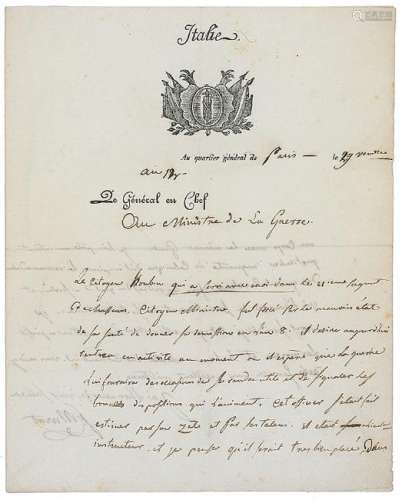 Italie.
Au quartier général de Paris — le 29
an 13.
Le Général en Chef
Au Ministre de La Guerre.
Le Citoyen qui a servi avec moi dans le 21 eme régiment
de chasseurs, Citoyen Ministre, fut forcé par le mauvais état
de sa santé de donner sa démission en l'an 8: il désire aujourd'hui
rentrer en activité au moment où il espère que la guerre
lui fournira des occasions de se rendre utile et de signaler les
bonnes dispositions qui l'animent, cet officier s'était fait
estimer par son zèle et par ses talens. il était
instructeur, et je pense qu'il serait très bien placé dans